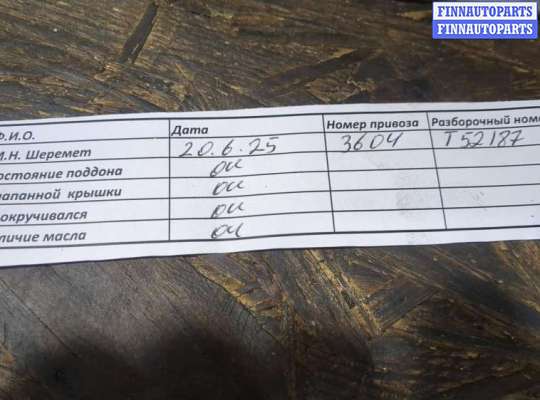 FINNAUTOPARTS
FINNAUTOPARTS
Ф.И.О. Дата Номер привоза Разборочный номе
И.Н. Шеремет 20.6.25 3604 T52187
остояние поддона ок
лапанной крышки ок
окручивался ок
личие масла ок